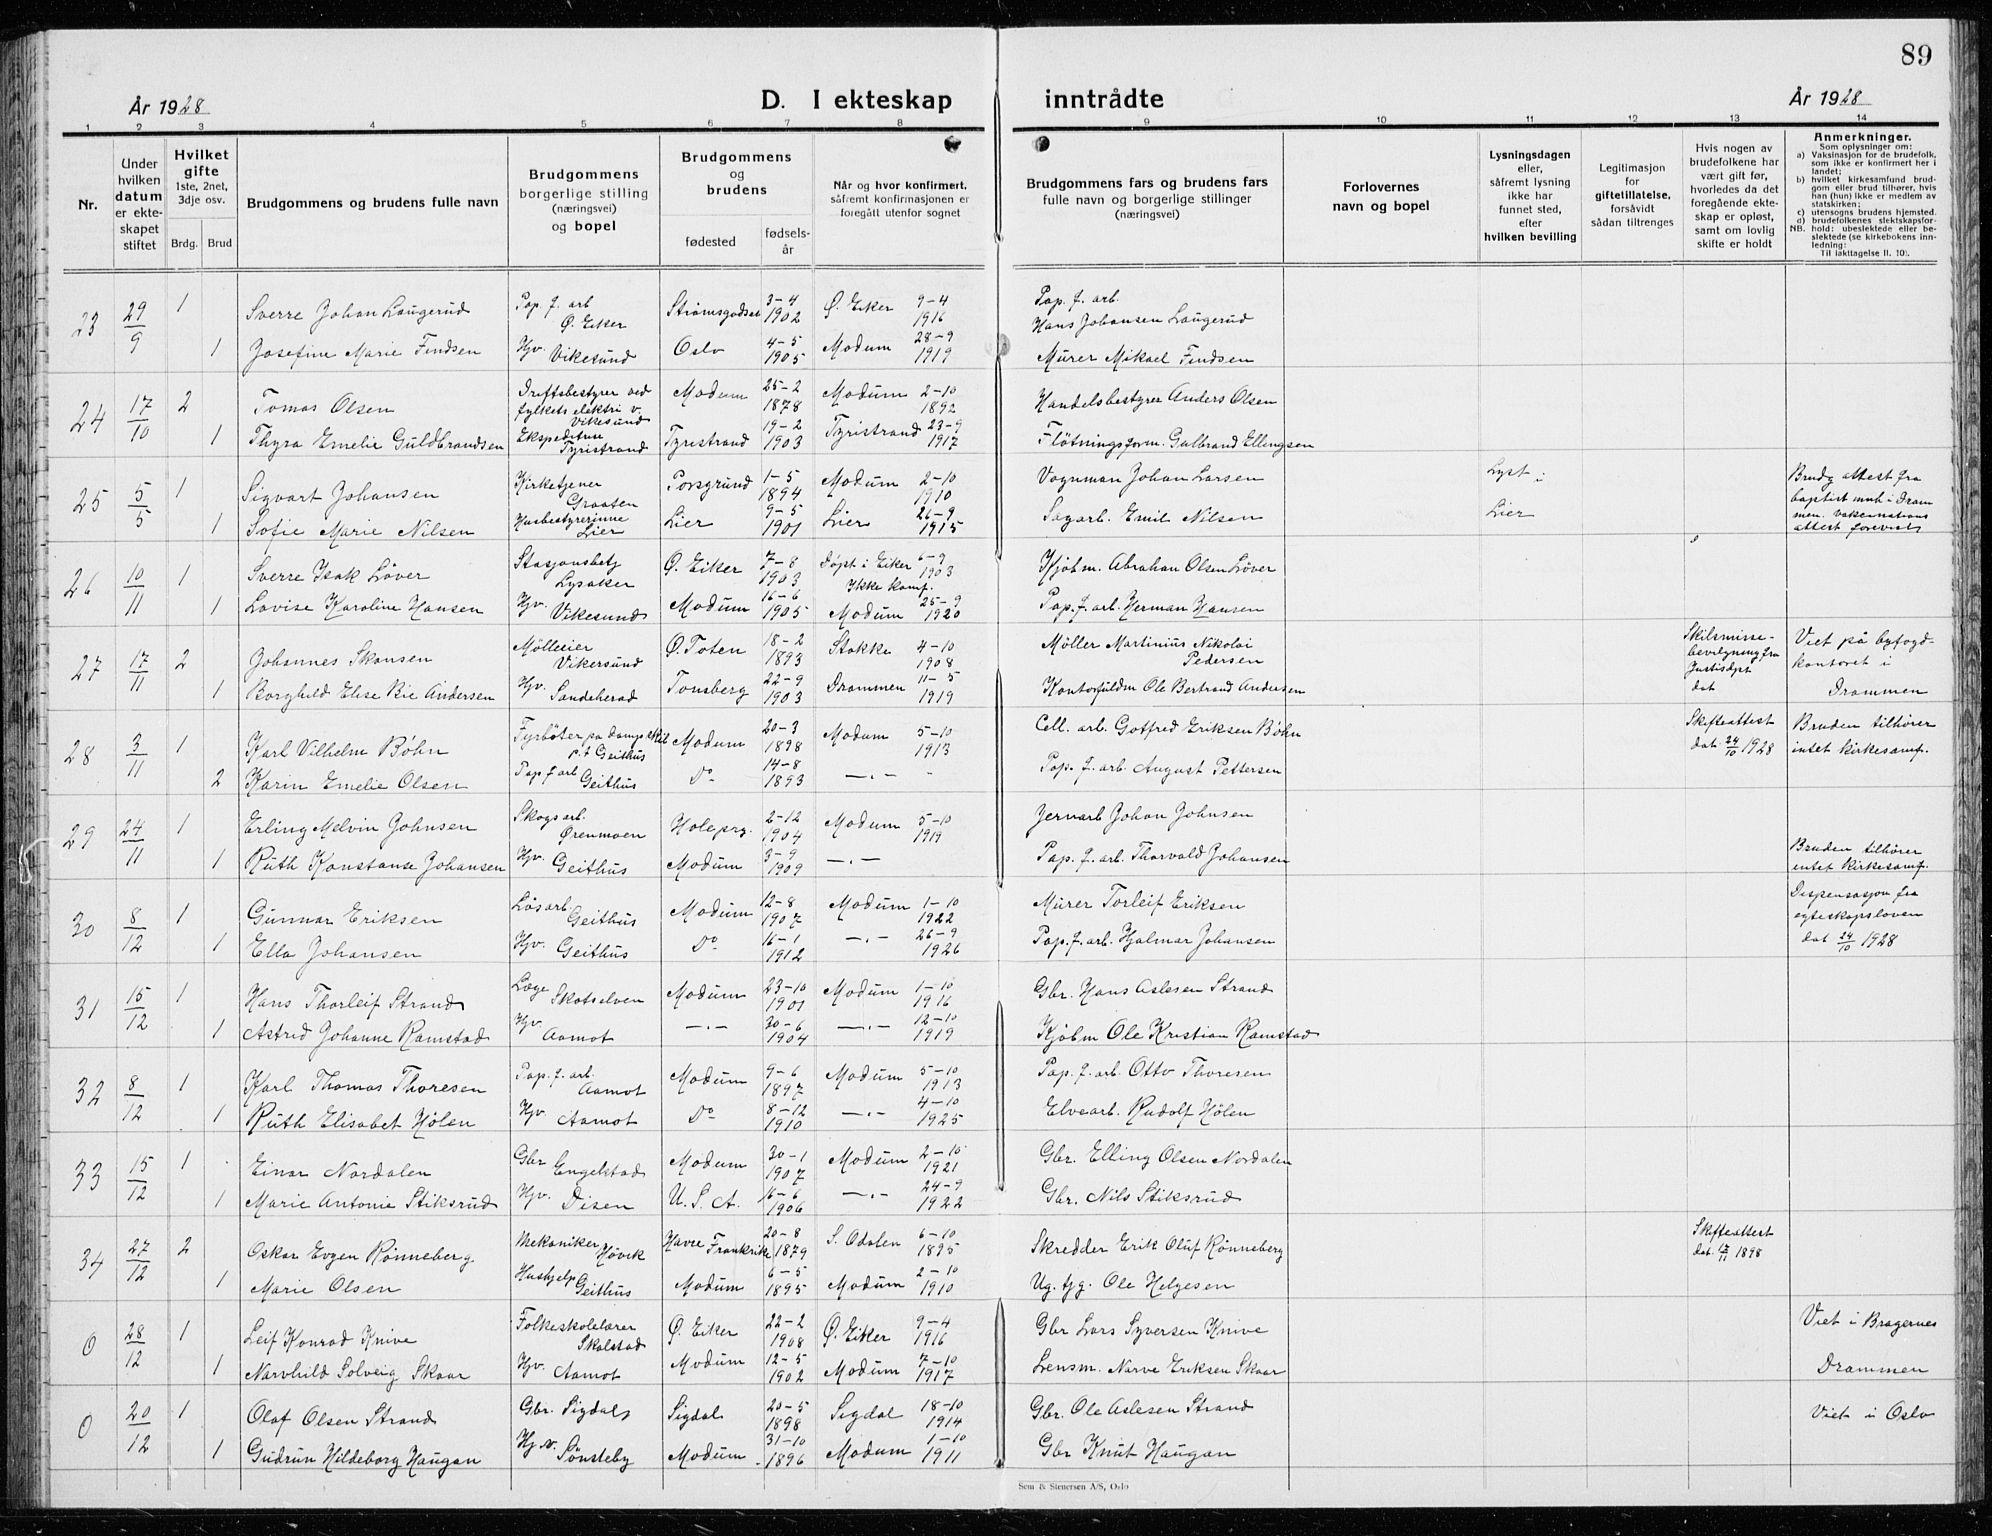 89
År 1928 D. I ekteskap inntrådte År 1928
1 2 3 4 5 6 7 8 9 10 11 12 13 14
Nr.
Under hvilken datum er ekteskapet stiftet
Hvilket gifte 1ste, 2net, 3dje osv.
Brdg. Brud
Brudgommens og brudens fulle navn
Brudgommens borgerlige stilling (næringsvei) og bopel
Brudgommens og brudens
fødested fødselsår
Når og hvor konfirmert, såfremt konfirmasjonen er foregått utenfor sognet
Brudgommens fars og brudens fars fulle navn og borgerlige stillinger (næringsvei)
Forlovernes navn og bopel
Lysningsdagen eller, såfremt lysning ikke har funnet sted, efter hvilken bevilling
Legitimasjon for giftetillatelse, forsåvidt sådan tiltrenges
Hvis nogen av brudefolkene har vært gift før, hvorledes da det foregående ekteskap er opløst, samt om lovlig skifte er holdt
Anmerkninger.
Som oplysninger om:
a) Vaksinasjon for de brudefolk, som ikke er konfirmert her i landet;
b) hvilket kirkesamfund brudgom eller brud tilhører, hvis han (hun) ikke er medlem av statskirken;
c) utensogns brudens hjemsted.
d) brudefolkenes slektskapsforhold: ubeslektede eller beslektede (se kirkebokens innledning:
NB. Til iakttagelse II. 10).
23 29/9 1 Sverre Johan Laugerud Pap. f. arb Ø. Eker Strømsgodset 3-4 1902 Ø. Eker 9-4 1916 Pap. f. arb. Hans Johansen Laugerud
1 Josefine Marie Findsen Hjv. Vikesund Oslo 4-5 1905 Modum 28-9 1919 Murer Mikael Findsen
24 17/10 2 Tomas Olsen Driftsbestyrer ved fylkets elektri v. Vikesund Modum 25-2 1878 Modum 2-10 1892 Handelsbestyrer Anders Olsen
1 Thyra Emelie Guldbrandsen Ekspeditrise Tyristrand Tyristrand 19-2 1903 Tyristrand 23-9 1917 Fløtningsform. Gulbrand Ellingsen
25 5/5 1 Sigvart Johansen Kirketjener Graaten Porsgrund 1-5 1894 Modum 2-10 1910 Vognman Johan Larsen Lyst i Brudg attest fra baptist mnh i Drammen. vaksinations attest forevist
1 Sofie Marie Nilsen Husbestyrerinne Lier Lier 9-5 1901 Lier 26-9 1915 Sagarb. Emil Nilsen Lier
26 10/11 1 Sverre Isak Løver Stasjonsbetj Lysaker Ø. Eiker 7-8 1903 Døpt i Eiker 6-9 1903 Ikke konf. Kjøbm. Abrahan Olsen Løver
1 Lovise Karoline Hansen Hjv. Vikesund Modum 16-6 1905 Modum 25-9 1920 Pap. f. arb. Herman Hansen
27 17/11 2 Johannes Skansen Mølleeier Vikersund Ø. Toten 18-2 1893 Stokke 4-10 1908 Møller Martinius Nikolai Pedersen Skilsmissebevilgning fra Justisdept dat Viet på byfogdkontoret i Drammen
1 Borghild Elise Bie Andersen Hjv. Sandeherad Tønsberg 22-9 1903 Drammen 11-5 1919 Kontorfuldm Ole Bertrand Andersen
28 3/11 1 Karl Vilhelm Bøhn Fyrbøter pa dampskib p.t Geithus Modum 20-3 1898 Modum 5-10 1913 Cell. arb. Gotfred Eriksen Bøhn Skifteattest dat. 24/10 1928 Bruden tilhører intet kirkesamf.
2 Karin Emelie Olsen Pap f arb Geithus Do 14-8 1893 —.— Pap. f. arb. August Pettersen
29 24/11 1 Erling Melvin Johnsen Skogsarb. Ørenmoen Hole prg. 2-12 1904 Modum 5-10 1919 Jernarb Johan Johnsen
1 Ruth Konstanse Johansen Hjv. Geithus Modum 3-9 1909 —.— Pap. f. arb. Thorvald Johansen Bruden tilhører intet kirkesamf.
30 8/12 1 Gunnar Eriksen Løsarb. Geithus Modum 12-8 1907 Modum 1-10 1922 Murer Torleif Eriksen Dispensasjon fra egteskapsloven dat 24/10 1928
1 Ella Johansen Hjv. Geithus Do 16-1 1912 —.— 26-9 1926 Pap. f. arb. Hjalmar Johansen
31 15/12 1 Hans Thorleif Strand Læge Skotselven Modum 23-10 1901 Modum 1-10 1916 Gbr. Hans Aslesen Strand
1 Astrid Johanne Ramstad Hjv. Aamot —.— 30-6 1904 —.— 12-10 1919 Kjøbm Ole Kristian Ramstad
32 8/12 1 Karl Thomas Thoresen Pap. f. arb. Aamot Modum 9-6 1897 Modum 5-10 1913 Pap. f. arb. Otto Thoresen
1 Ruth Elisabet Hølen Hjv Aamot Do 8-12 1910 —.— 4-10 1925 Elvearb. Rudolf Hølen
33 15/12 1 Einar Nordalen Gbr Engelstad Modum 30-1 1907 Modum 2-10 1921 Gbr. Elling Olsen Nordalen
1 Marie Antonie Stiksrud Hjv. Disen U. S. A. 16-6 1906 —.— 24-9 1922 Gbr. Nils Stiksrud
34 27/12 2 Oskar Evgen Rønneberg Mekaniker Høvik Havre Frankrik 20-8 1879 S. Odalen 6-10 1895 Skredder Erik Oluf Rønneberg Skifteattest dat. 17/11 1898
1 Marie Olsen Hushjelp Geithus Modum 6-5 1895 Modum 2-10 1910 Ug. fg. Ole Helgesen
0 28/12 1 Leif Konrad Knive Folkeskolelærer Skalstad Ø. Eiker 22-2 1908 Ø. Eiker 9-4 1916 Gbr Lars Syversen Knive Viet i Bragernes
1 Narvhild Solveig Skaar Hjv. Aamot Modum 12-5 1902 Modum 7-10 1917 Lensm. Narve Eriksen Skaar Drammen
0 20/12 1 Olaf Olsen Strand Gbr. Sigdal Sigdal 20-5 1898 Sigdal 18-10 1914 Gbr. Ole Aslesen Strand Viet i Oslo
1 Gudrun Hildeborg Haugan Hjv. Sønsteby Modum 31-10 1896 Modum 1-10 1911 Gbr Knut Haugan
Sem & Stenersen A/S, Oslo